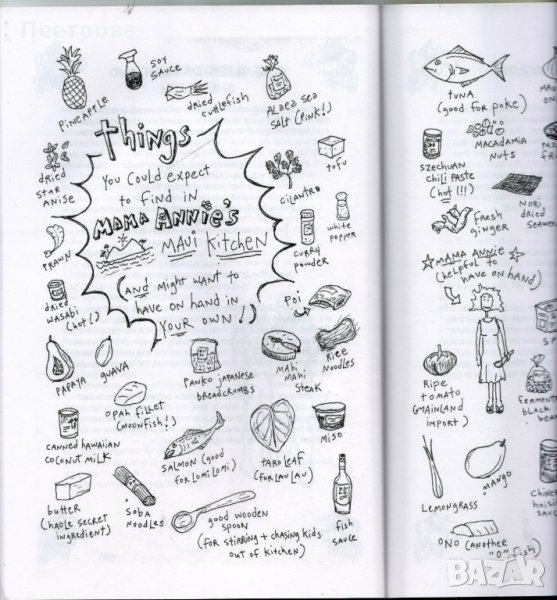 Пеетрова
PINEAPPLE
SOY
SAUCE
dried
cuttlefish
ALAEA SEA
SALT (PINK!)
things
YOU COULD EXPECT
to find in
MAMA ANNIE'S
MAUI KITCHEN
(AND MIGHT WANT to
HAVE ON HAND IN
YOUR OWN!)
dried
STAR
ANISE
PRAWN
dried
WASABI
(HOT!)
CILANTRO
TOFU
CURRY
POWDER
white
pepper
Poi
PAPAYA
GUAVA
PANKO JAPANESE
BREADCRUMBS
MAHI
MAHI
STEAK
RICE
NOODLES
OPAH FILLET
(MOONFISH!)
CANNED HAWAIIAN
COCONUT MILK
SALMON (good
FOR LOMI LOMI)
TARO LEAF
(FOR LAU LAU)
MISO
butter
(HAOLE SECRET
INGREDIENT)
SOBA
NOODLES
good wooden
spoon
(for stirring + chasing kids
out of kitchen)
fish
SAUCE
TUNA
(good for poke)
SZECHUAN
CHILI PASTE
(HOT!!!)
MACADAMIA
NUTS
NORI
DRIED
SEAWE
FRESH
GINGER
MAMA ANNIE
(HELPFUL TO
HAVE ON HAND)
RIPE
TOMATO
(MAINLAND
IMPORT)
FERMENT
BLACK
BEA
LEMONGRASS
MANGO
CHIN
HOISI
SAUC
ONO (ANOTHER
"O" fish)
BAZAR